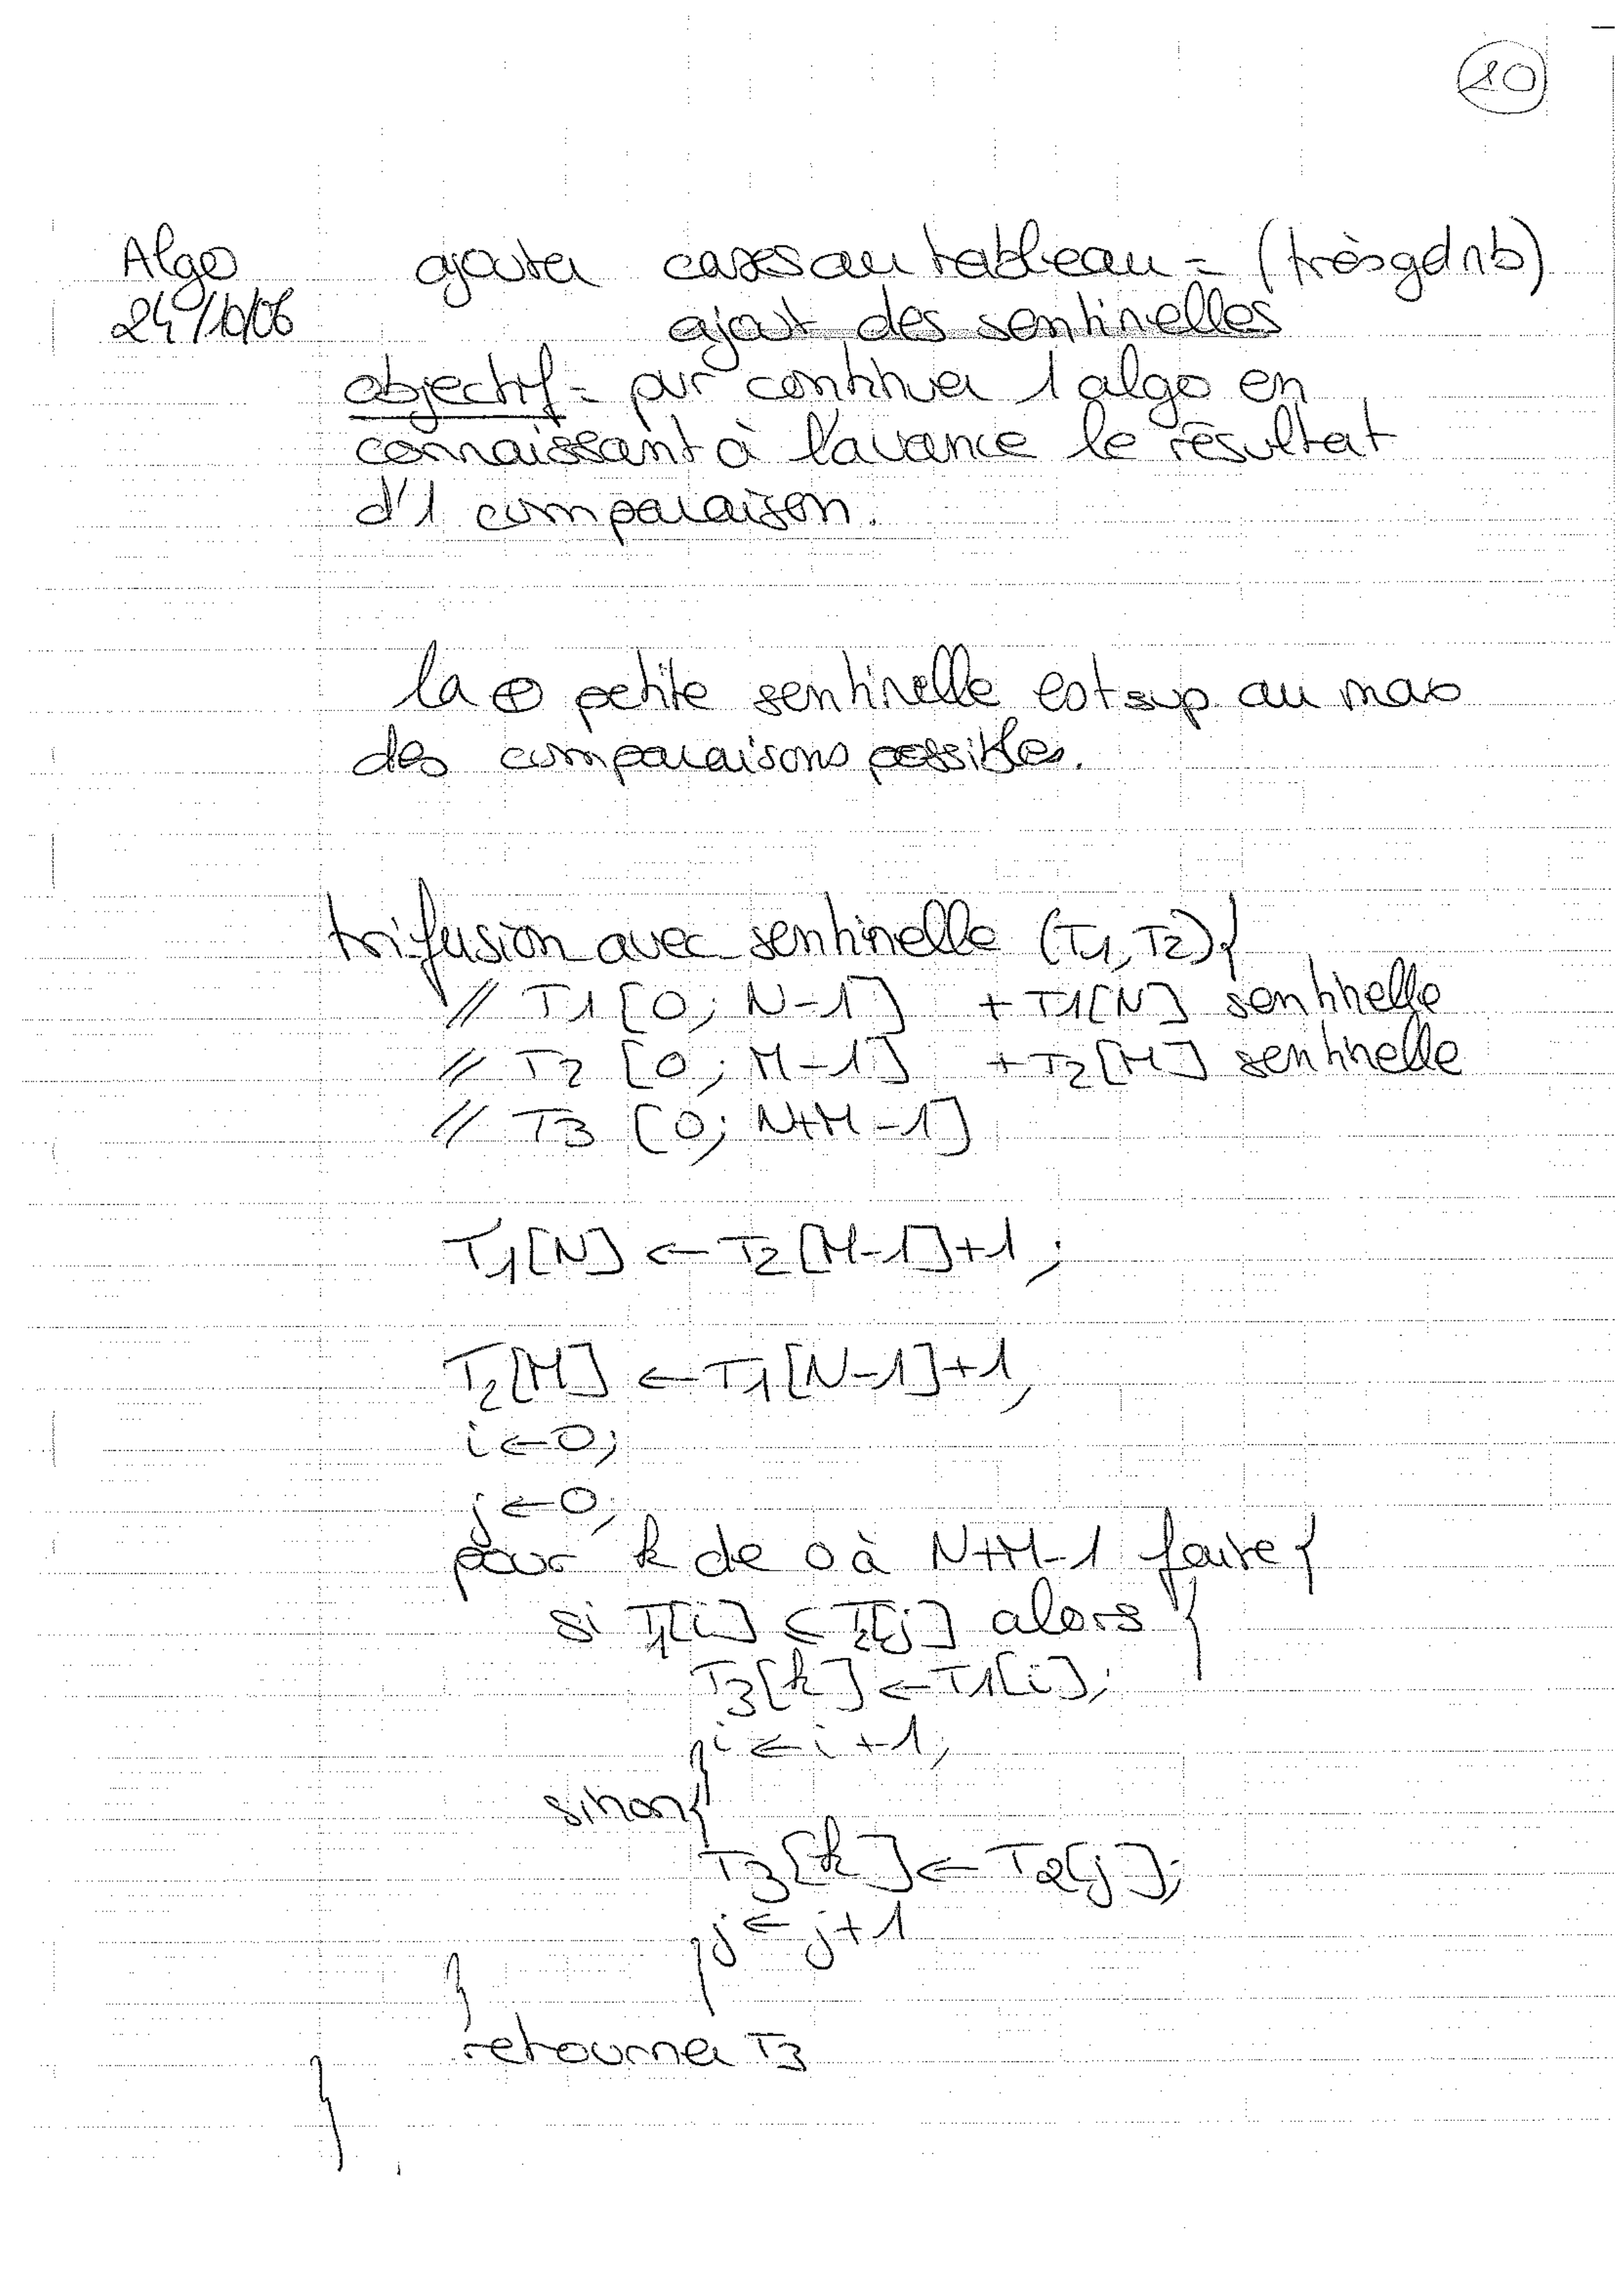 20
Algo ajouter cases au tableau = (très gd nb)
24/10/06 ajout des sentinelles
objectif = pur continuer 1 algo en
connaissant à l'avance le résultat
d'1 comparaison.
la ⊕ petite sentinelle est sup au max
des comparaisons possibles.
trifusion_avec_sentinelle (T1, T2){
// T1 [0; N-1] + T1[N] sentinelle
// T2 [0; M-1] + T2[M] sentinelle
// T3 [0; N+M-1]
T1[N] ← T2[M-1]+1;
T2[M] ← T1[N-1]+1;
i ← 0;
j ← 0;
pour k de 0 à N+M-1 faire {
si T1[i] < T2[j] alors {
T3[k] ← T1[i];
} i ← i+1;
sinon {
T3[k] ← T2[j];
} j ← j+1
}
retourner T3
}